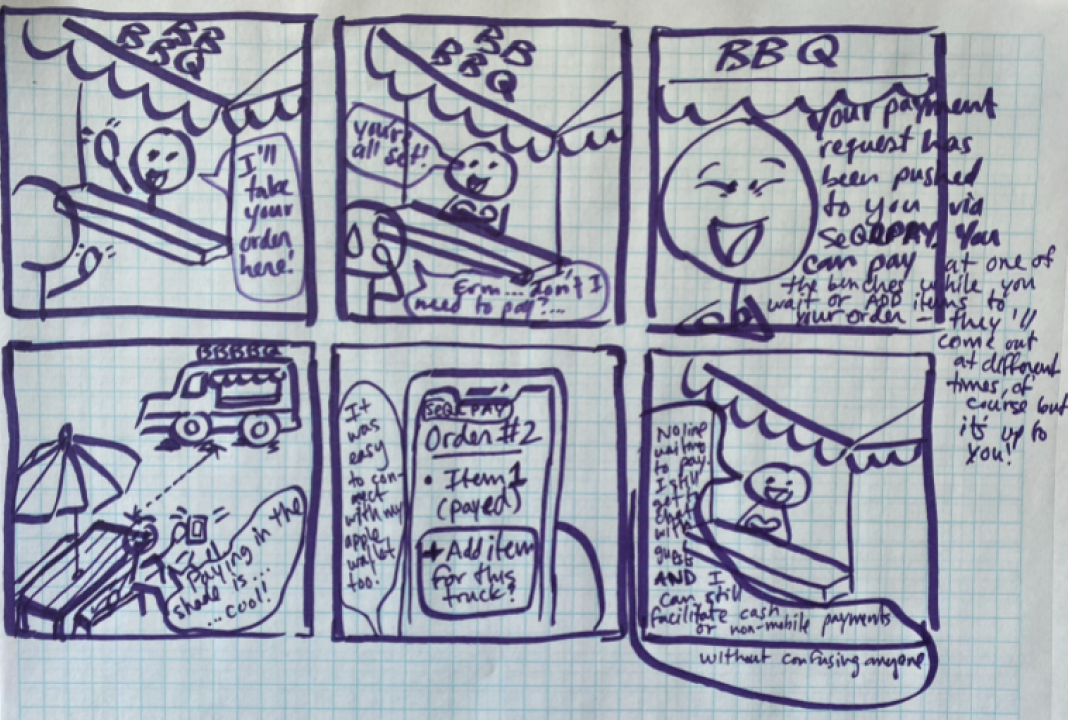 B BB
BQ
I'll
take
your
order
here!
BB
BBQ
you're
all set!
Erm... Don't I
need to pay?...
BBQ
Your payment
request has
been pushed
to you via
seQRPAY. You
can pay at one of
the benches while you
wait or ADD items to
your order - they'll
come out
at different
times, of
course but
it's up to
you!"
BBBBQ
Paying in the
shade is...
...cool!
It
was
easy
to con-
nect
with my
apple
wallet
too!
seQRPAY
Order #2
• Item 1
(payed)
+ Add item
for this
truck?
No line
waiting
to pay.
I still
get to
chat
with
guests
AND I
can still
facilitate cash
or non-mobile payments
without confusing anyone